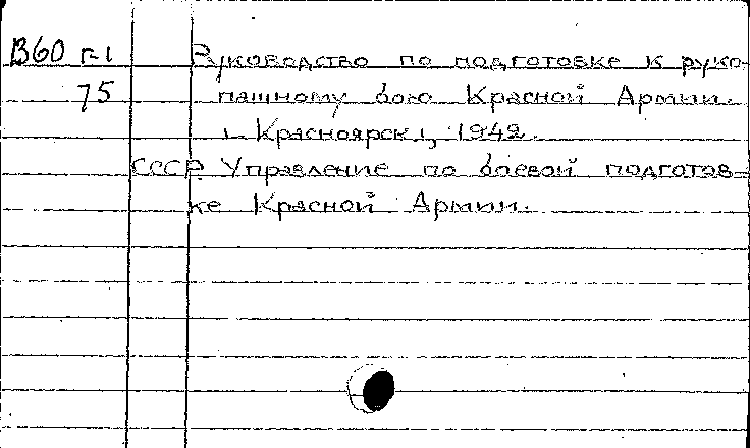 В60 г-1 Руководство по подготовке к руко-
75 пашному бою Красной Армии.
[Красноярск], 1942.
СССР. Управление по боевой подготов-
ке Красной Армии.